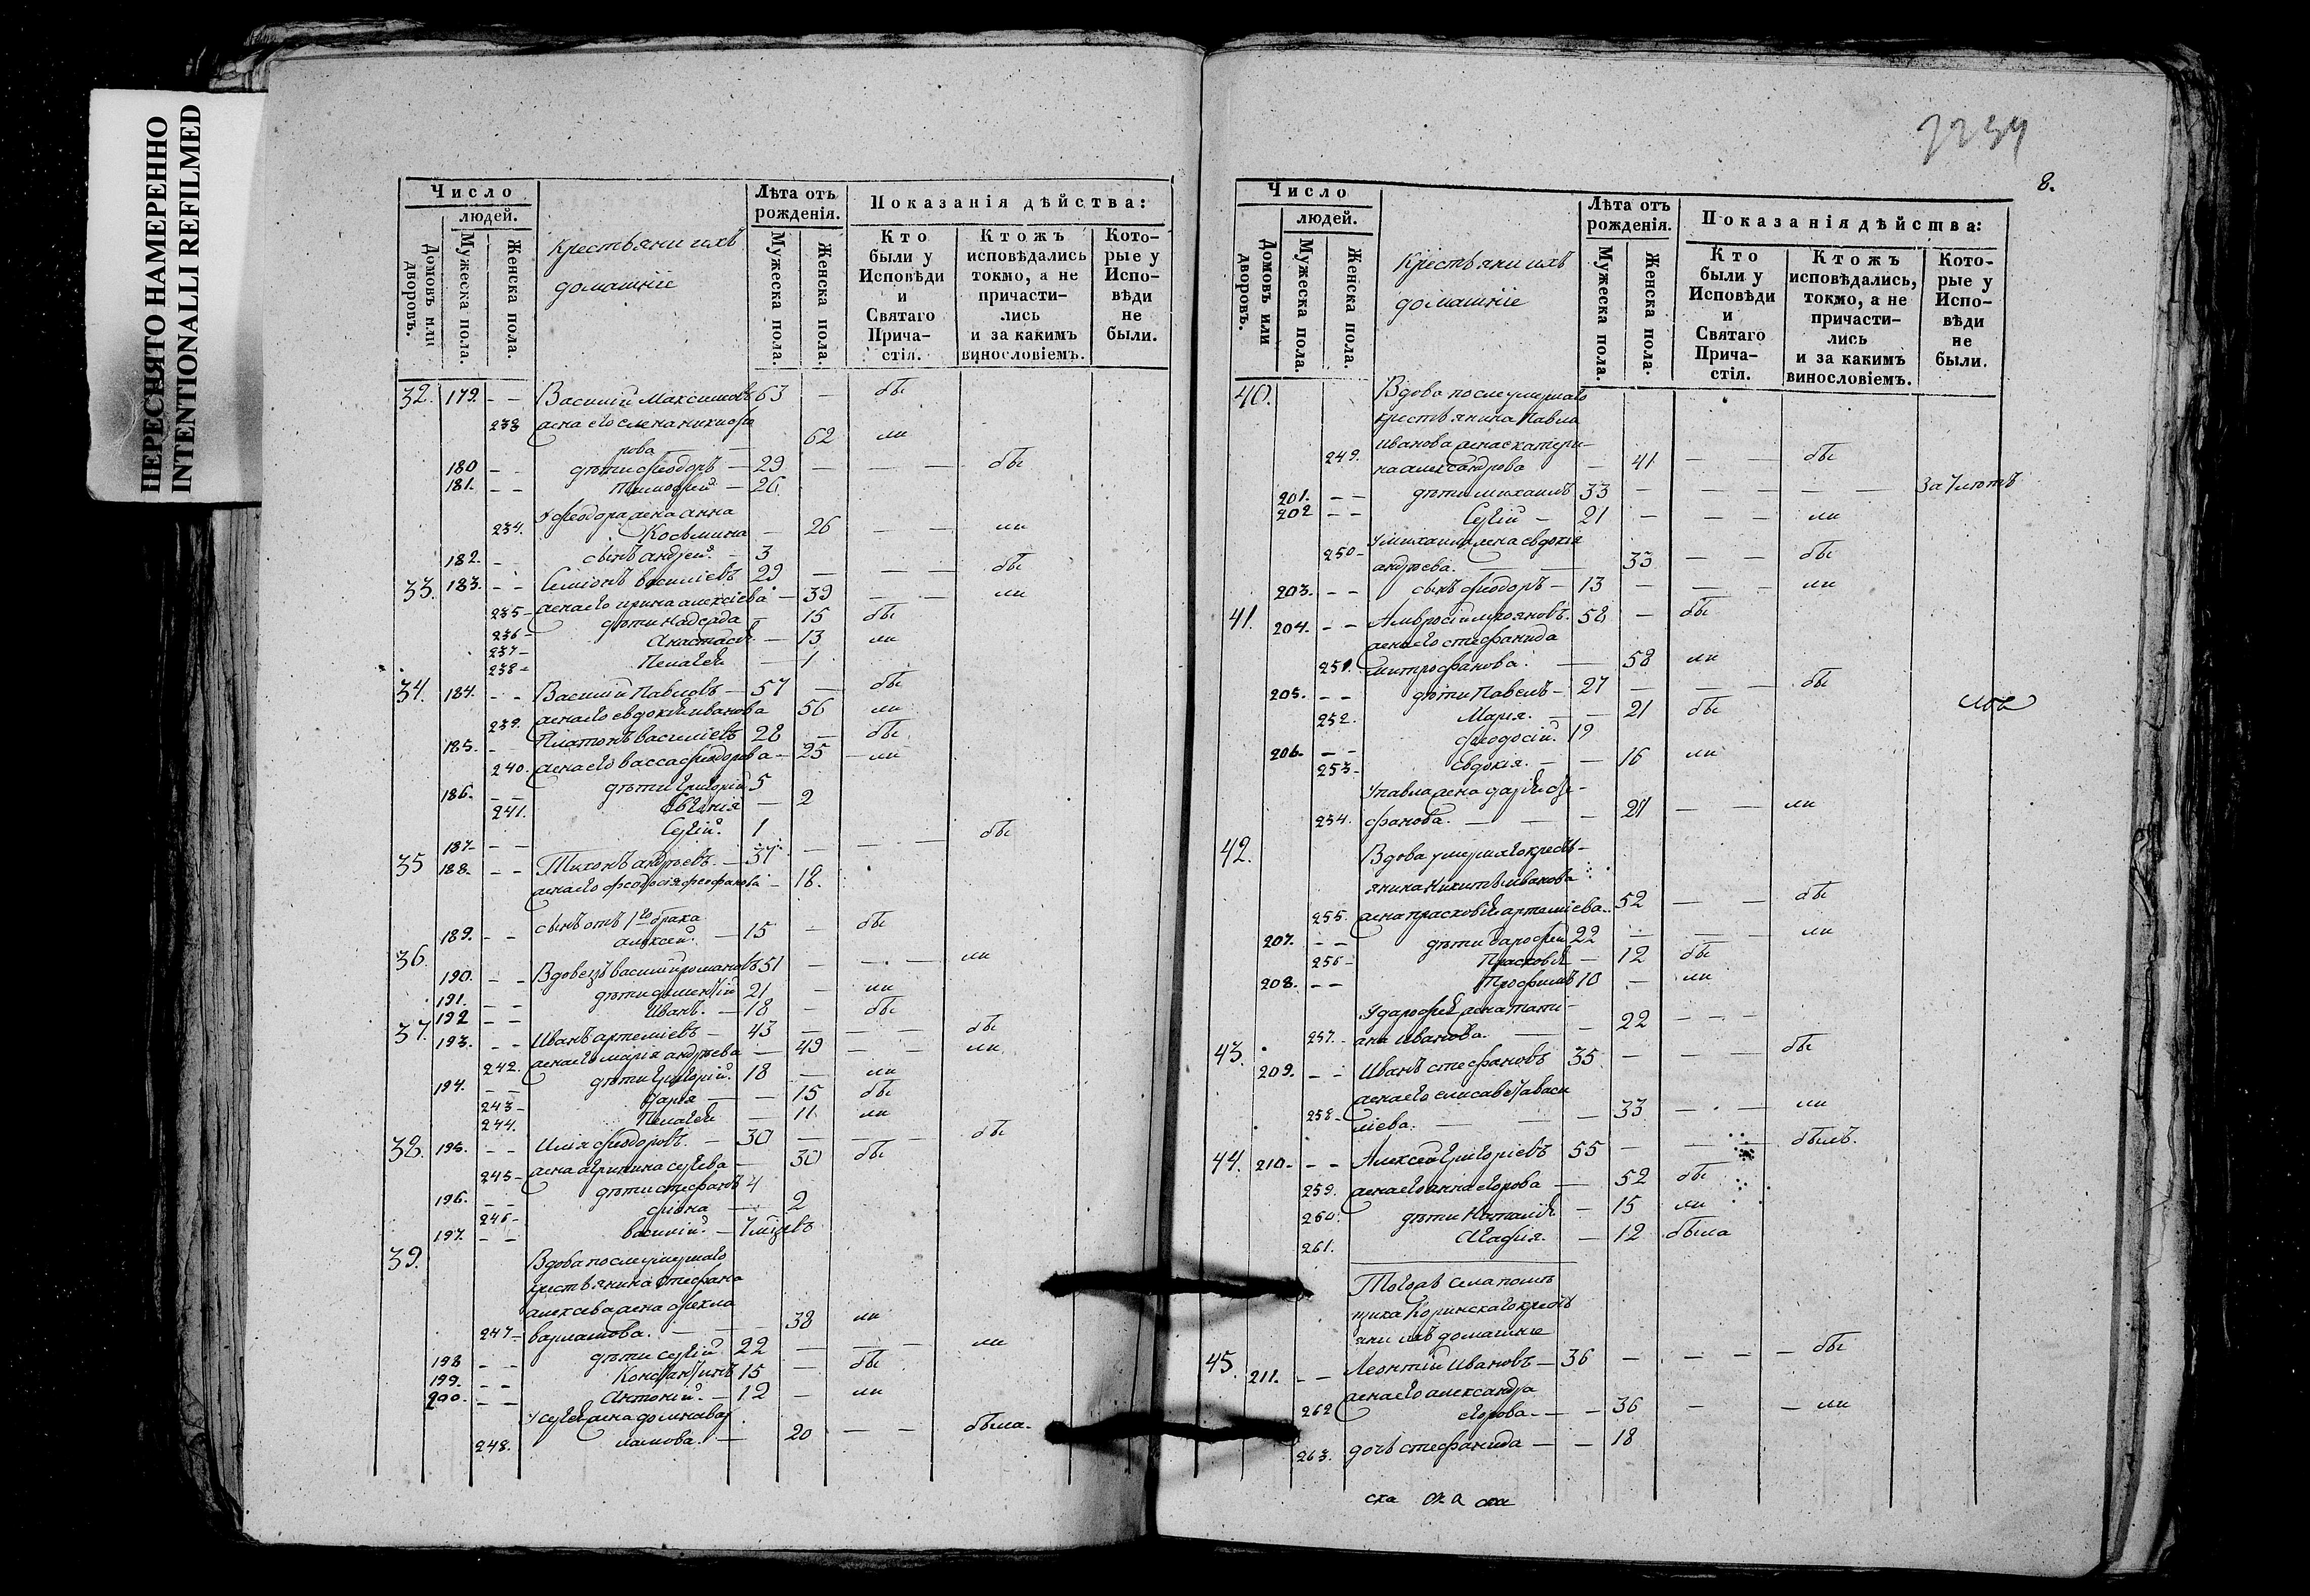 ПЕРЕСНЯТО НАМЕРЕННО
INTENTIONALLI REFILMED
Число
людей.
Домовъ или дворовъ.
Мужеска пола.
Женска пола.
Крестьяни ихъ
домашніе
Лѣта отъ рожденія.
Мужеска пола.
Женска пола.
Показанія дѣйства:
Кто были у Исповѣди и Святаго Прича-стія.
Ктожъ исповѣдались токмо, а не причасти-лись и за какимъ винословіемъ.
Кото-рые у Испо-вѣди не были.
32. 179. - - Василій Максимовъ 63 — бы
233 жена его елена никифо
рова 62 ли
180 - - дѣти феодоръ — 29 — — — бы
181. - - Тимофей — 26
У феодора жена анна
234. Косьмина — 26 — — ли
182. - сынъ андрей. — 3
33. 183. - - Симіонъ василіевъ 29 — — — бы
235 - жена его ирина алексіева — 39 — — ли
236 - дѣти Надежда — 15 бы
237 - Анастасія — 13 ли
238 - Пелагея — 1
34. 184. - - Василій Павловъ — 57 — бы
239. жена его евдокія иванова 56 ли
185. - Платонъ василіевъ 28 — бы
240. жена его васса феодорова — 25 — ли
186. - - дѣти Григорій 5
241. Евгенія — 2
187 - - - Сергій. 1
35 188. - - Тихонъ андреевъ. — 37 — — — бы
жена его феодосія феофанова — 18.
сынъ отъ 1го брака
189. - - алексей. — 15 — бы
36. 190. - - Вдовецъ василій романовъ 51 — — — ли
191. - - дѣти 21 — ли
192 - - Иванъ. — 18 — бы
37. 193. - - Иванъ артеміевъ — 43 — — — бы
242. жена его марія андреева — 49 — — ли
194. - - дѣти Григорій. 18 — ли
243 - Дарія — — 15 бы
244. Пелагея — 11 ли
38. 195. - - Илія феодоровъ. — 30 — — — бы
245 - жена агрипина сергева — 30 бы
196. - - дѣти стефанъ 4
246 - — 2
197. - - василій. — 7 мцевъ
39. Вдова после умершаго
крестьянина Стефана
алексева жена фекла
247 - варламова. — 38 ли
198 - - дѣти сергій 22 — — — ли
199. - - Константинъ 15 — бы
200. - - Антоній. — 12 — ли
У сергея жена домна вар
248. ламова. — 20 — — была.
2234
8.
Число
людей.
Домовъ или дворовъ.
Мужеска пола.
Женска пола.
Крестьяни ихъ
домашніе
Лѣта отъ рожденія.
Мужеска пола.
Женска пола.
Показанія дѣйства:
Кто были у Исповѣди и Святаго Прича-стія.
Ктожъ исповѣдались, токмо, а не причасти-лись и за какимъ винословіемъ.
Кото-рые у Испо-вѣди не были.
40. Вдова после умершаго
крестьянина Павла
иванова жена екатери-
249. на александрова — 41 — — бы
201. - - дѣти михаилъ 33 — — — —
202 - - Сергій — 21 — — — ли
У михаила жена евдокія
250 - андреева. — 33 — — бы
203. - - сынъ феодоръ — 13 — — — ли
41. 204. - - Амвросій лукояновъ. 58 — бы
жена его стефанида
251. митрофанова. — 58 ли
205. - - дѣти Павелъ — 27 — — — бы
252. Марія. — — 21 бы
206. - - феодосій. 19
253 - Евдокія. — — 16 ли
У павла жена дарія сте-
254. фанова. — — — 21 — — ли
42. Вдова умершаго кресть-
янина Никиты иванова
255. жена прасковія артеміева.. 52 — — бы
207. - - дѣти дарофей 22 — — — ли
256 - Прасковія — 12 бы
208. - - Трофимъ 10 — ли
У дарофея жена тати-
257. ана иванова. — — 22 — — —
43. 209. - - Иванъ стефановъ 35. — — — бы
жена его елисавета васи
258 - ліева. — — — 33 — — ли
44. 210 - - - Алексей Григоріевъ 55 — — — былъ.
259. жена его анна егорова — 52 бы
260. дѣти Наталія — 15 ли
261. Агафія. — 12 была
Тогожъ села помѣ
щика кресть
яни ихъ домашніе
45. 211. - - Леонтій Ивановъ — 36 — — — бы
жена его александра
262 егорова — — 36 — — ли
263. дочь стефанида — — 18